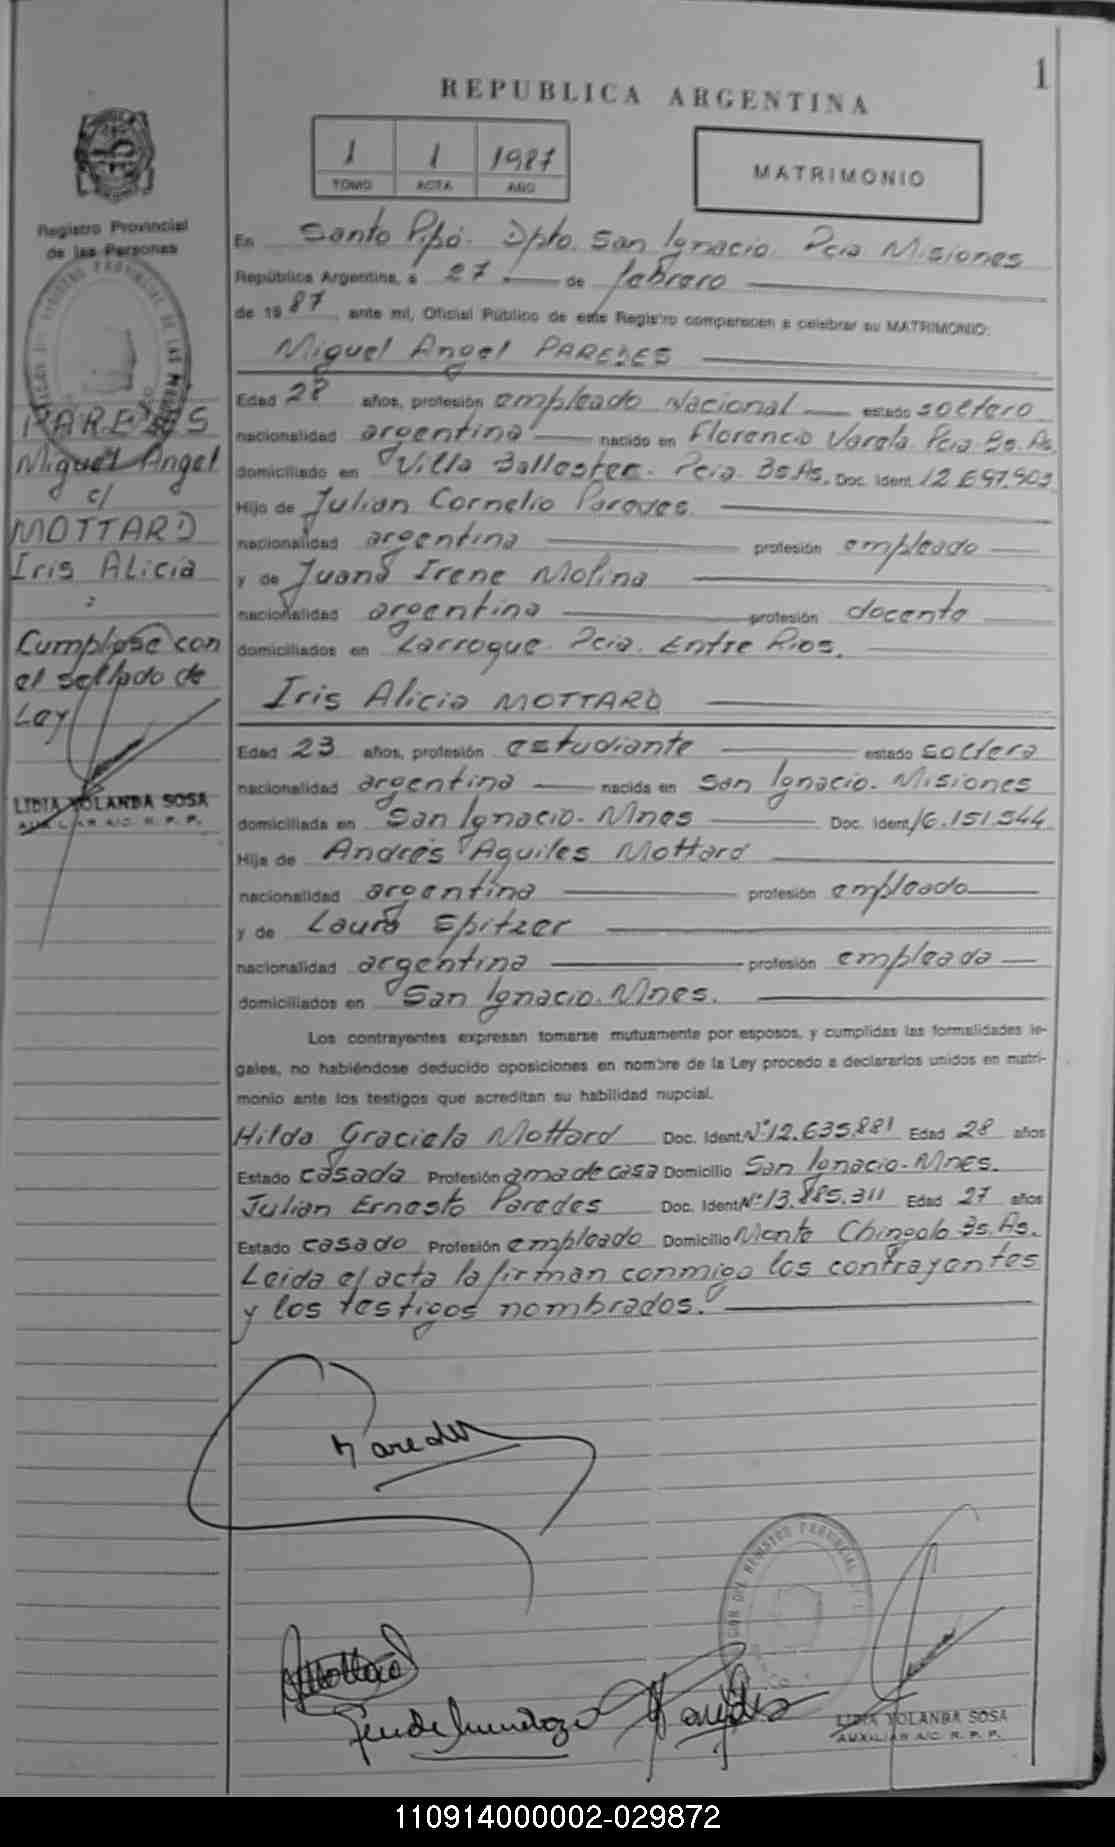 1
REPUBLICA ARGENTINA
1 1 1987
TOMO ACTA AÑO
MATRIMONIO
Registro Provincial
de las Personas
PAREDES
Miguel Angel
c/
MOTTARD
Iris Alicia
:
Cumplase con
el sellado de
Ley
LIDIA YOLANDA SOSA
AUXILIAR A/C. R. P. P.
En Santo Pipó. Dpto. San Ignacio. Pcia Misiones
República Argentina, a 27 de febrero
de 1987, ante mí, Oficial Público de este Registro comparecen a celebrar su MATRIMONIO:
Miguel Angel PAREDES
Edad 28 años, profesión empleado Nacional estado soltero
nacionalidad argentina nacido en Florencio Varela Pcia. Bs. As.
domiciliado en Villa Ballester. Pcia. Bs.As. Doc. Ident. 12.697.903
Hijo de Julian Cornelio Paredes.
nacionalidad argentina profesión empleado
y de Juana Irene Molina
nacionalidad argentina profesión docente
domiciliados en Larroque. Pcia. Entre Rios.
Iris Alicia MOTTARD
Edad 23 años, profesión estudiante estado soltera
nacionalidad argentina nacida en San Ignacio. Misiones
domiciliada en San Ignacio. Mnes Doc. Ident. 16.151.544
Hija de Andrés Aquiles Mottard
nacionalidad argentina profesión empleado
y de Laura Spitzer
nacionalidad argentina profesión empleada
domiciliados en San Ignacio. Mnes.
Los contrayentes expresan tomarse mutuamente por esposos, y cumplidas las formalidades le-
gales, no habiéndose deducido oposiciones en nombre de la Ley procedo a declararlos unidos en matri-
monio ante los testigos que acreditan su habilidad nupcial.
Hilda Graciela Mottard Doc. Ident. Nº 12.635.881 Edad 28 años
Estado casada Profesión ama de casa Domicilio San Ignacio-Mnes.
Julian Ernesto Paredes Doc. Ident Nº 13.885.311 Edad 27 años
Estado casado Profesión empleado Domicilio Monte Chingolo Bs. As.
Leida el acta la firman conmigo los contrayentes
y los testigos nombrados.
Paredes
LIDIA YOLANDA SOSA
AUXILIAR A/C. R. P. P.
110914000002-029872